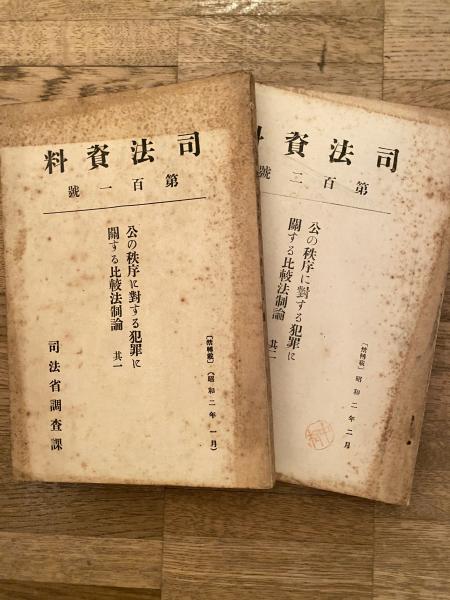 司法資料
第百一號
公の秩序に對する犯罪に
關する比較法制論 其一
〔禁轉載〕(昭和二年一月)
司法省調査課
司法資
第百二號
公の秩序に對する犯罪に
關する比較法制論 其二
〔禁轉載〕昭和二年二月